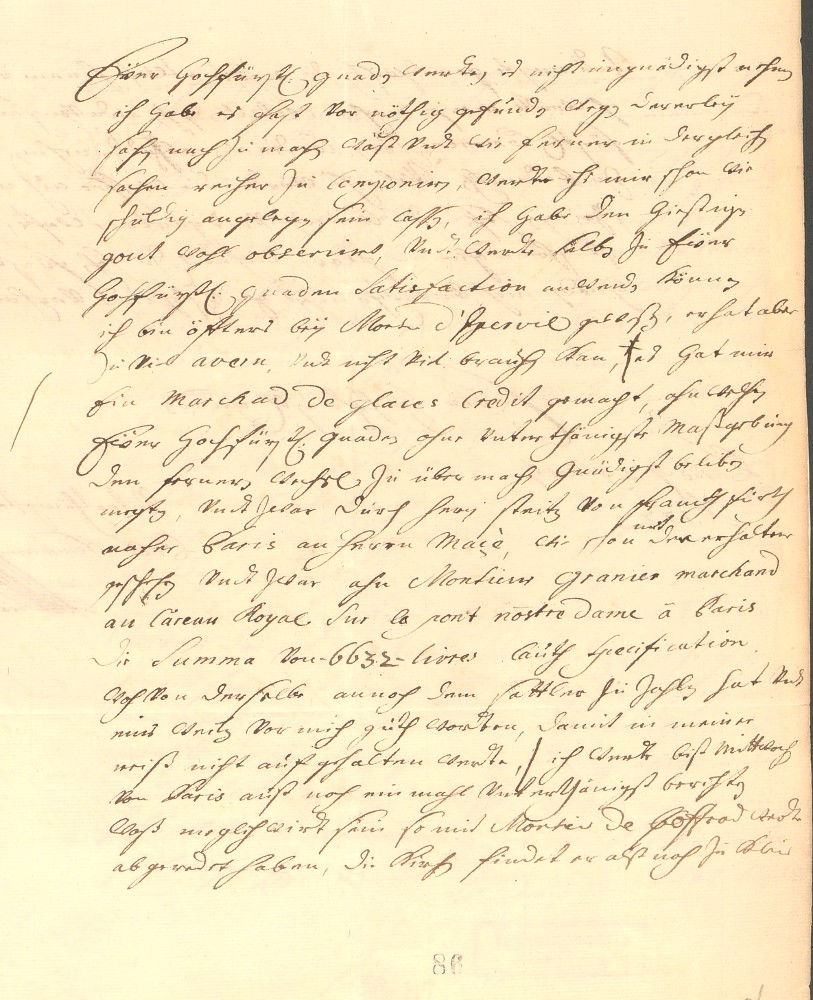 Eüer Hochfürstl: gnad werden es nicht ungnädigst nehmen
ich habe es hechst vor nöthig gefunden wegen dererley
sachen nach zu machen lassen undt die ferner in dergleichen
sachen reicher zu componiren, werde ihs mir schon wie
schuldig angelegen sein lassen, ich habe den hiesigen
gout wohl observiret, undt werde selben zu Eüer
Hochfürstl: gnaden Satisfaction anwenden können
ich bin öffters bey Monsr d' gewesen, er hat aber
zu viel undt nicht viel brauchen kan, es hat mir
Ein Marchad De glaces Credit gemacht, ahn welchen
Eüer Hochfürstl: gnaden ohne unterthönigste Maßgebung
den fernern wechsel zu über machen gnädigst belieben
megten, undt zwar durch herrn von Franckfürth
naher Paris an Herrn die schon mit der erhaltene
geschehen undt zwar ahn Monsieur Granier marchand
au Careau Royal Sur le pont nostre Dame à Paris
Die Summa von -6632- livres lauth specification
von derselbe annoch dem sattler zu zahlen hat undt
vor mich guth worden, damit in meiner
reiß nicht auf gehalten werde, / ich werde biß Mittwoch
von Paris auß noch ein mahl unterthänigst berichten
waß meglich wirdt sein so mit Monsieur De werde
ab geredet haben, die Kirch findet er alß noch zu klein
86